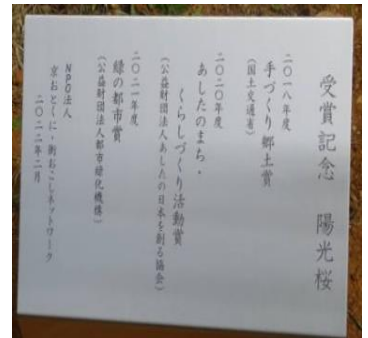 受賞記念　陽光桜
二〇一八年度
手づくり郷土賞
（国土交通省）
二〇二〇年度
あしたのまち・
くらしづくり活動賞
（公益財団法人あしたの日本を創る協会）
二〇二一年度
緑の都市賞
（公益財団法人都市緑化機構）
NPO法人
京おとくに・街おこしネットワーク
二〇二二年二月